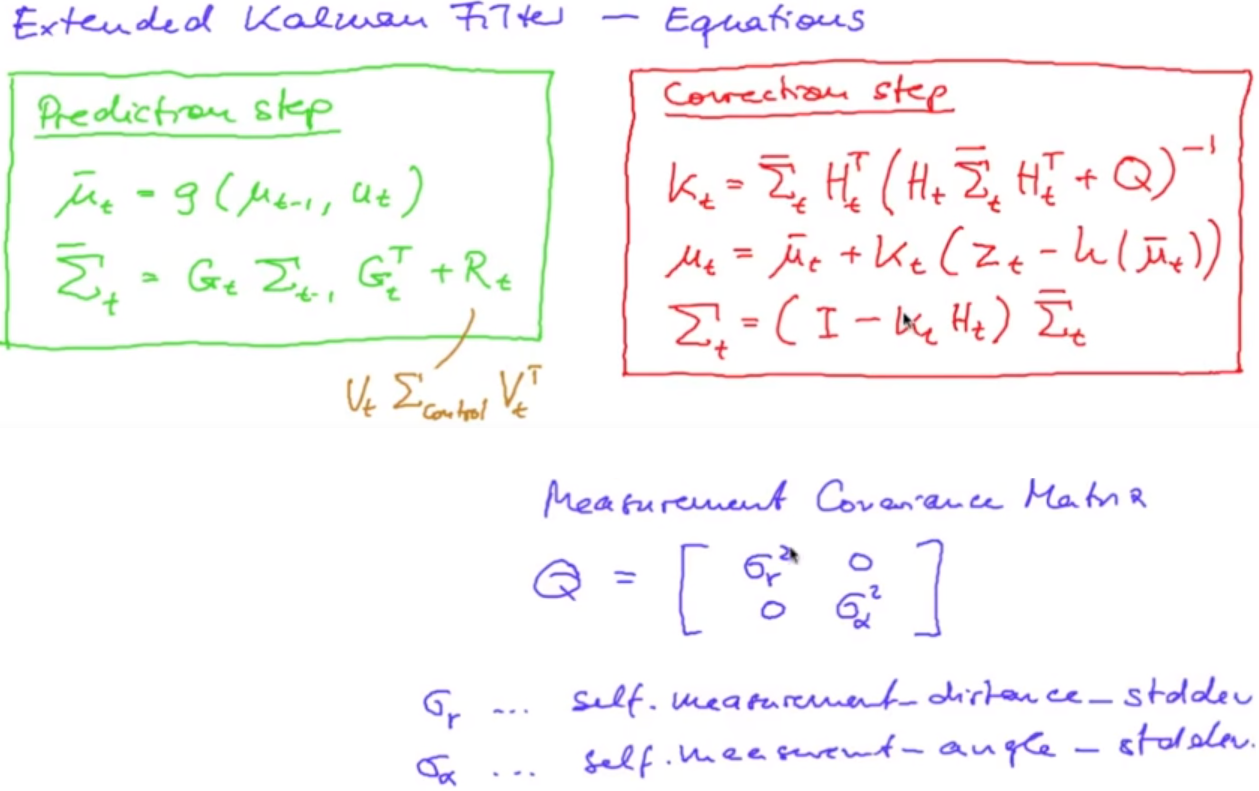 Extended Kalman Filter — Equations
Prediction step
μ̄_t = g(μ_{t-1}, u_t)
Σ̄_t = G_t Σ_{t-1} G_t^T + R_t
V_t Σ_control V_t^T
Correction step
K_t = Σ̄_t H_t^T (H_t Σ̄_t H_t^T + Q)^{-1}
μ_t = μ̄_t + K_t (z_t - h(μ̄_t))
Σ_t = (I - K_t H_t) Σ̄_t
Measurement Covariance Matrix
Q = [ σ_r^2 0
0 σ_α^2 ]
σ_r ... self.measurement_distance_stddev
σ_α ... self.measurement_angle_stddev.